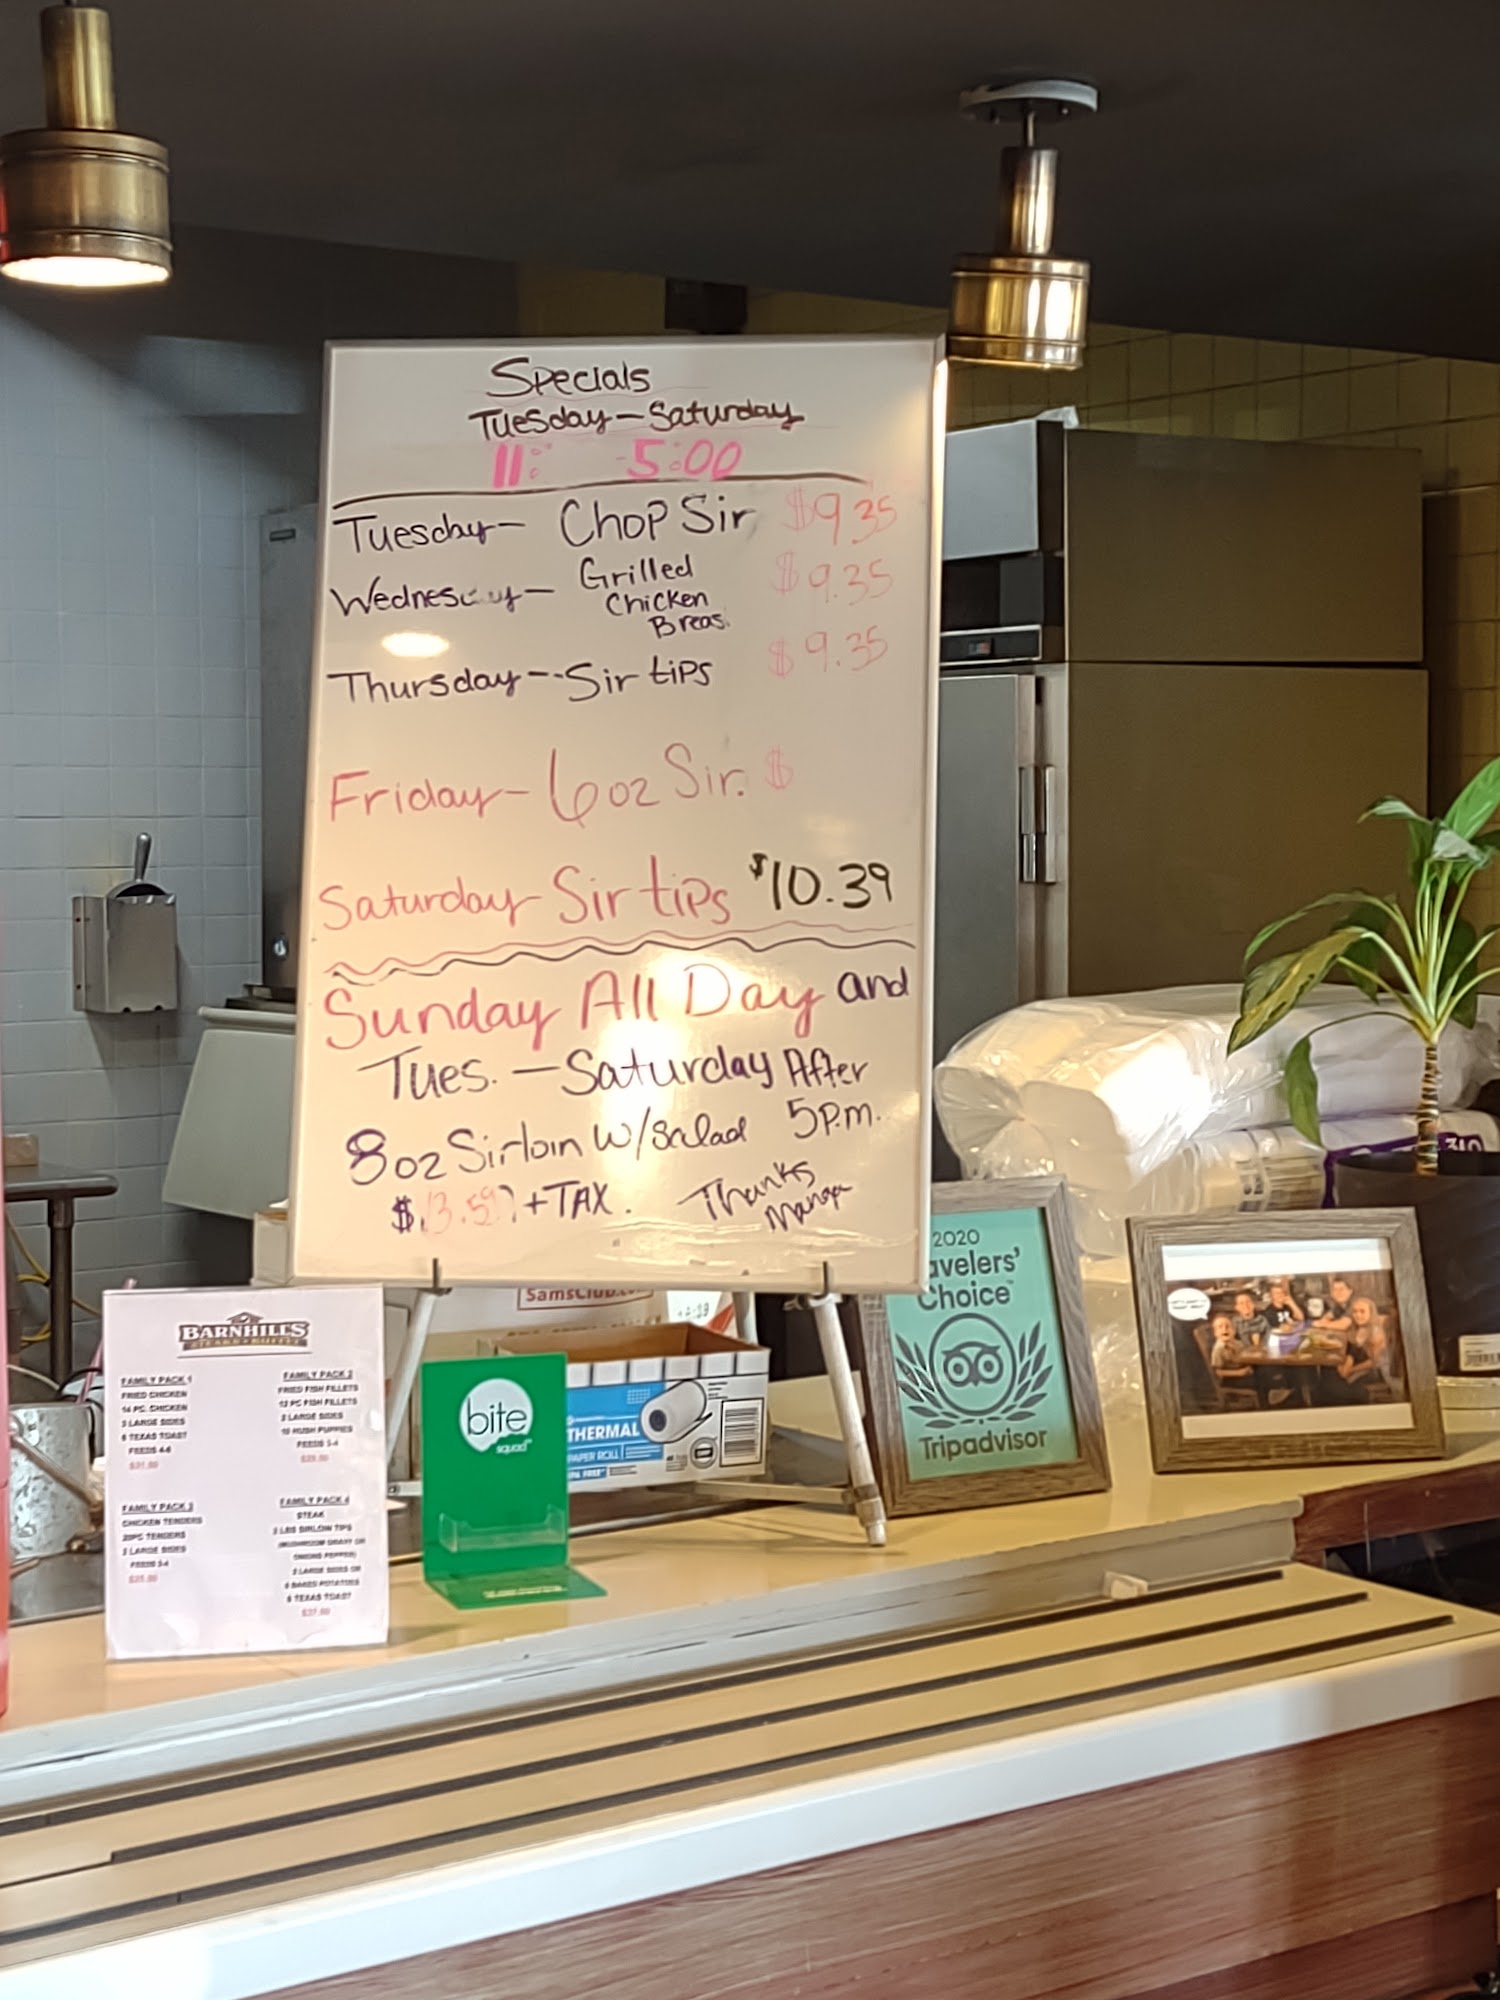 Specials
Tuesday - Saturday
11: -5:00
Tuesday - Chop Sir $9.35
Wednesday - Grilled Chicken Breas. $9.35
Thursday -- Sir tips $9.35
Friday - 6oz Sir. $
Saturday - Sir tips $10.39
Sunday All Day and
Tues. - Saturday After
8oz Sirloin w/salad 5p.m.
$13.59 + TAX. Thanks
SAMSCLUB.
BARNHILL'S
FAMILY PACK 1
FRIED CHICKEN
14 PC. CHICKEN
3 LARGE SIDES
6 TEXAS TOAST
FEEDS 4-6
FAMILY PACK 2
FRIED FISH FILLETS
12 PC FISH FILLETS
2 LARGE SIDES
10 HUSH PUPPIES
FEEDS 3-4
FAMILY PACK 3
CHICKEN TENDERS
20PC TENDERS
2 LARGE SIDES
FEEDS 3-4
FAMILY PACK 4
STEAK
2 LBS SIRLOIN TIPS
2 LARGE SIDES OR
6 BAKED POTATOES
6 TEXAS TOAST
bite
squad
THERMAL
PAPER ROLL
BPA FREE
2020
avelers'
Choice
Tripadvisor
310